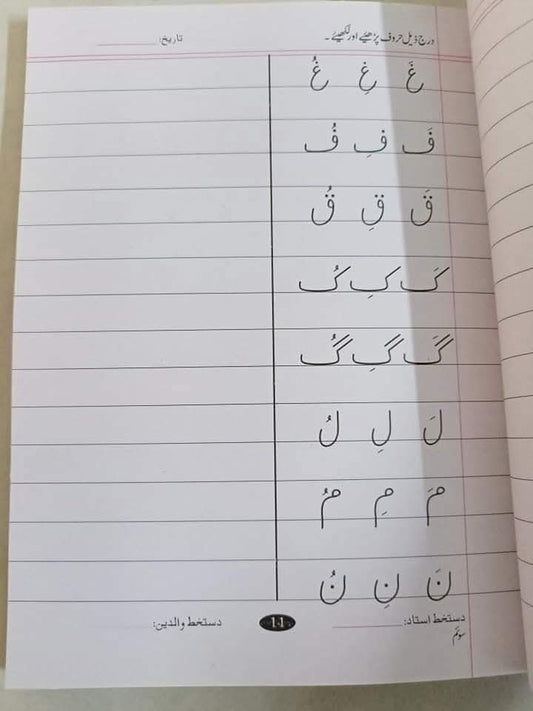 درج ذیل حروف پڑھئیے اور لکھیئے ۔ تاریخ:
غَ غِ غُ
فَ فِ فُ
قَ قِ قُ
کَ کِ کُ
گَ گِ گُ
لَ لِ لُ
مَ مِ مُ
نَ نِ نُ
دستخط استاد: 14 دستخط والدین:
سوئم